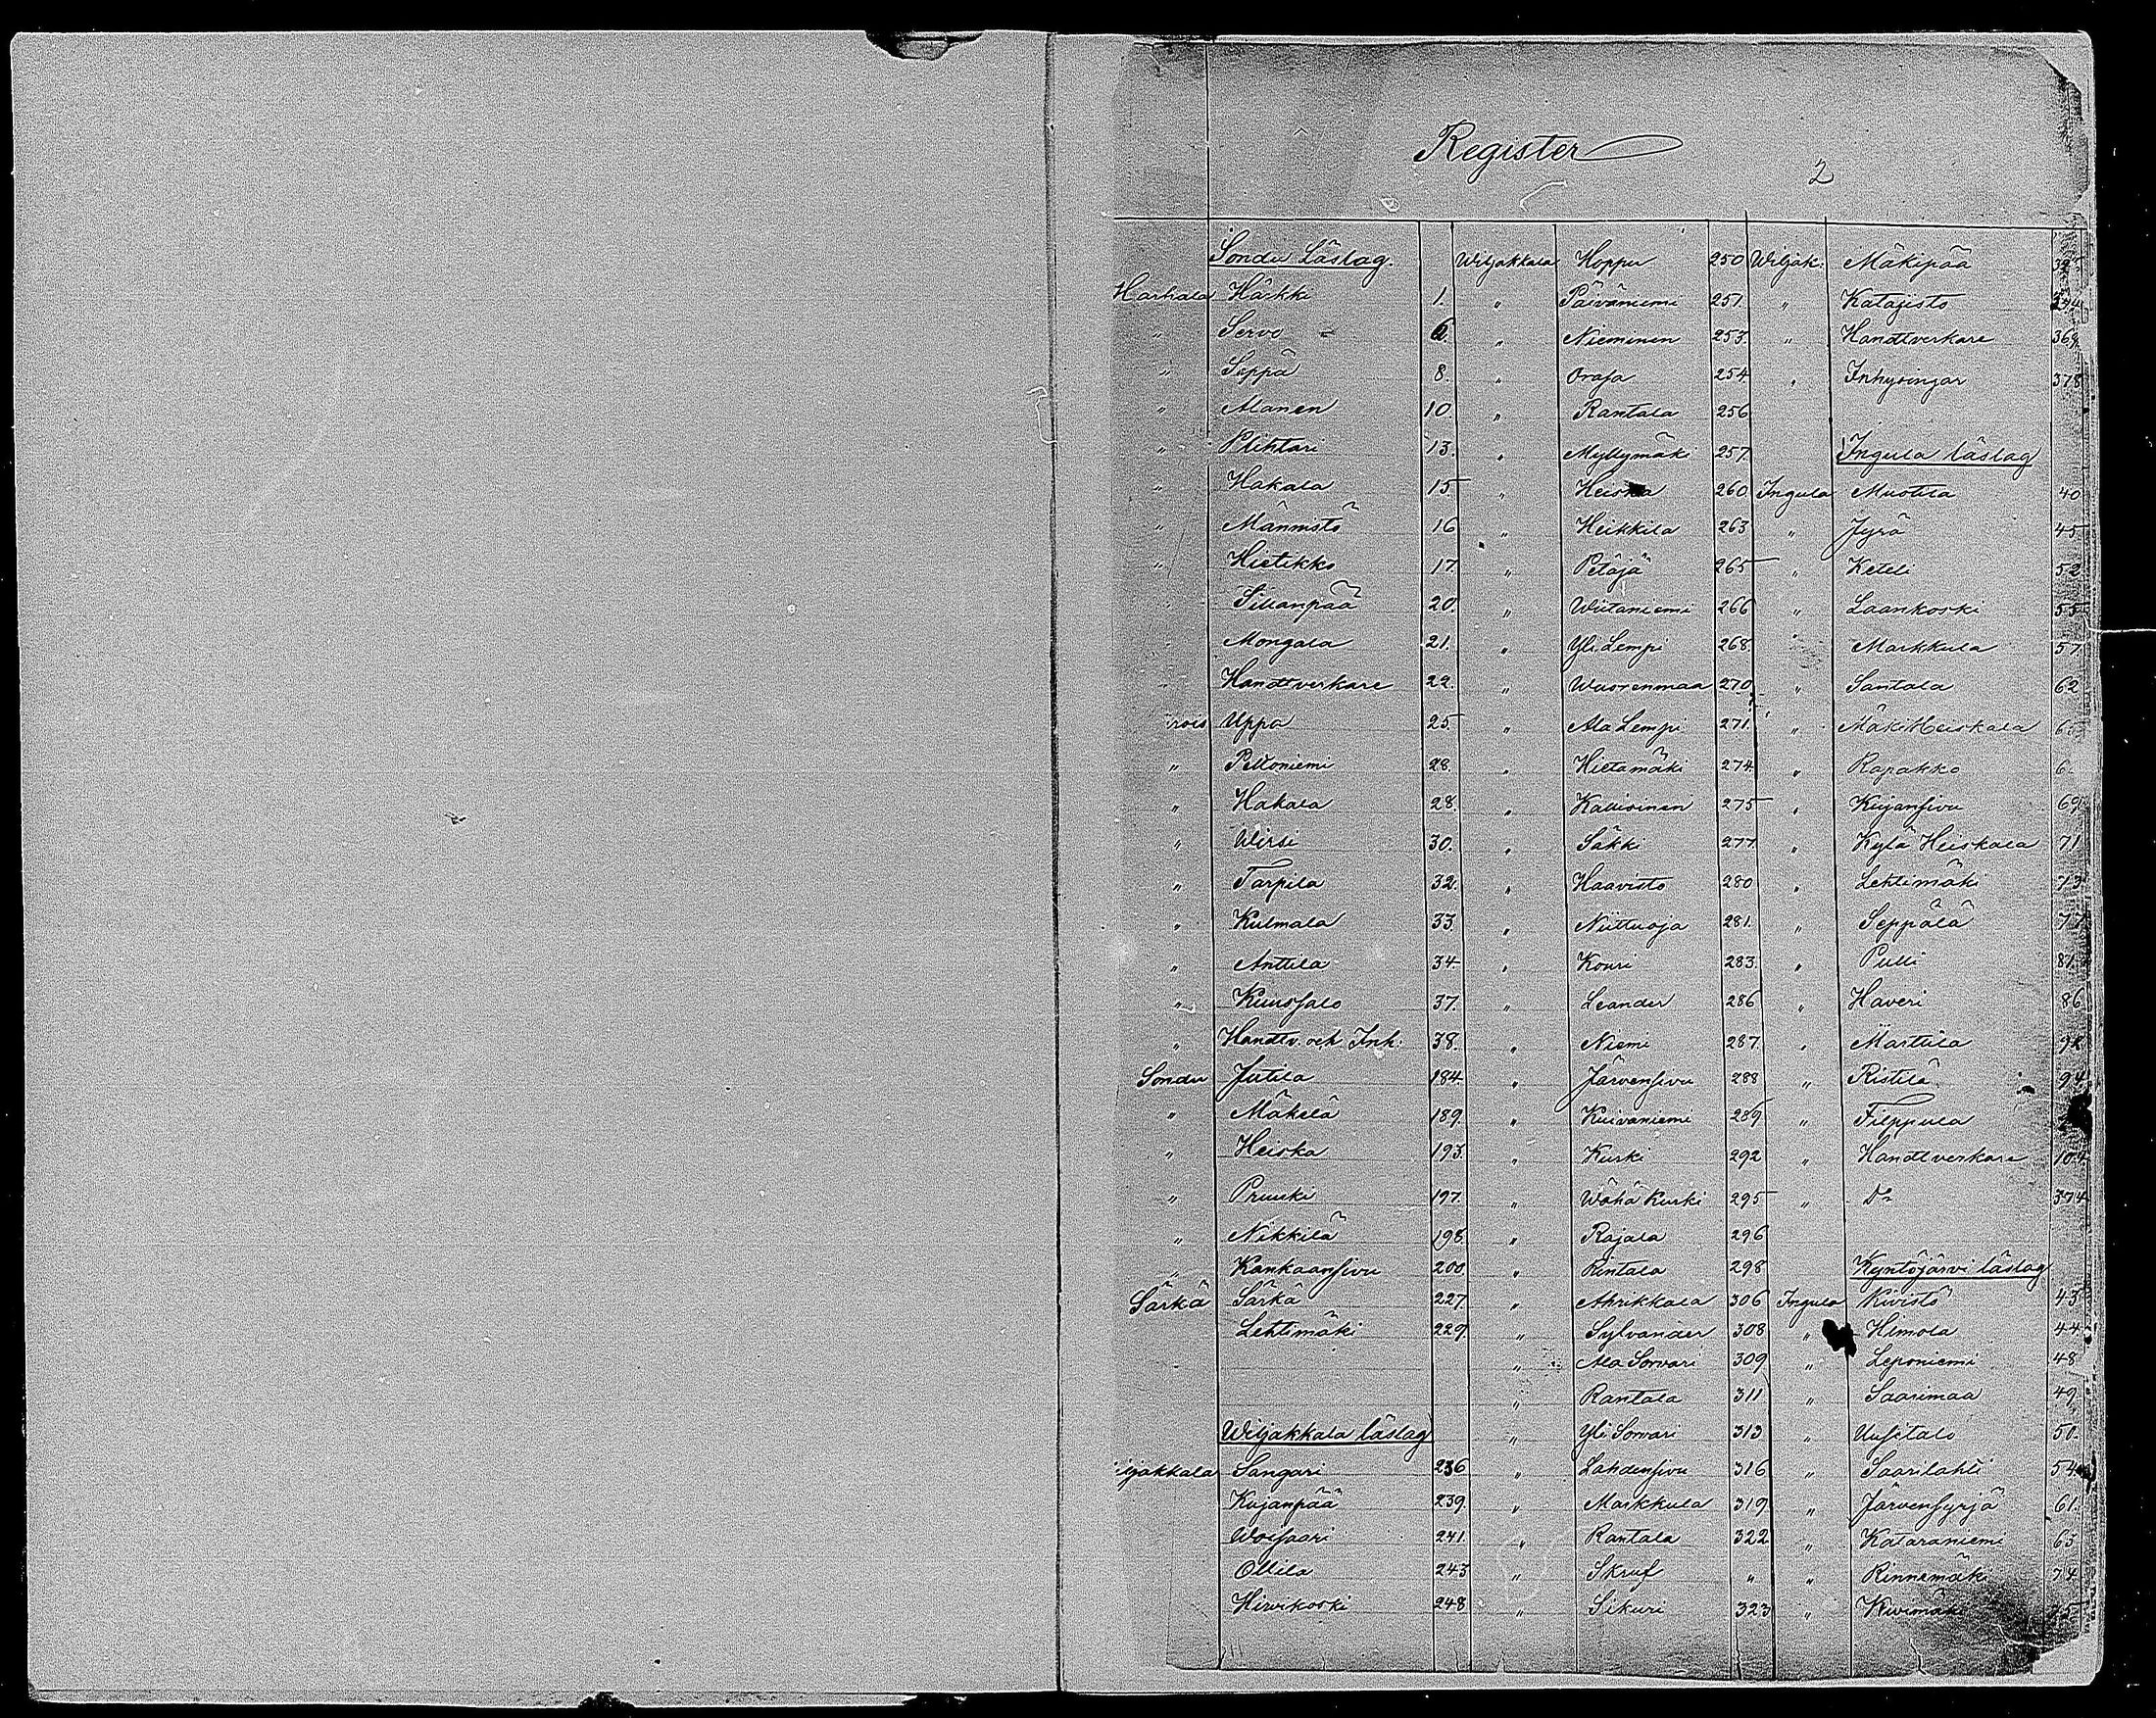 Register
2
Sondu Läslag.
Harhala Härkki 1.
" Servo 6.
" Seppä 8.
" Alanen 10.
" Plihtari 13.
" Hakala 15
" Männistö 16
" Hietikko 17.
" Sillanpää 20.
" Mongala 21.
Handtverkare 22.
Uppa 25
" Peltoniemi 28.
" Hakala 28.
" Wirsi 30.
" Tarpila 32.
" Kulmala 33.
" Anttila 34.
" Kuusjalo 37.
" Handtv. och Inh: 38.
Sondu Jutila 184
" Mäkelä 189.
" Heiska 193.
" Pruuki 197.
" Nikkilä 198.
" Kankaansivu 200
Särkä Särkä 227.
Lehtimäki 229
Wiljakkala läslag
Sangari 236
Kujanpää 239.
Woisaari 241.
Ollila 243
Hirvikoski 248
Wiljakkala Hoppu 250
" Päiväniemi 251.
" Nieminen 253.
" Oraja 254
" Rantala 256
" Myllymäki 257.
" Heiska 260
" Heikkilä 263
" Petäjä 265
" Wiitaniemi 266
" Yli Lempi 268.
" Wuorenmaa 270
" Ala Lempi 271.
" Hietamäki 274.
" Kallioinen 275
" Säkki 277
" Haavisto 280
" Niittuoja 281.
" Kouri 283.
" Leander 286
" Niemi 287.
" Järvensivu 288
" Kuivaniemi 289
" Kurki 292
" Wähä Kurki 295
" Rajala 296
" Rintala 298
" Ahrikkala 306
" Sylvander 308
" Ala Sorvari 309
" Rantala 311
" Yli Sorvari 313
" Lahdensivu 316
" Markkula 319
" Rantala 322
" Skruf "
" Sikuri 323
Wiljak: Mäkipää
" Katajisto
" Handtverkare 369
" Inhysingar 378
Ingula läslag
Ingula Muotila 40
" Jyrä 45
" Keteli 52
" Laankoski 55
" Markkula 57
" Santala 62
" Mäki Heiskala
" Rapakko
" Kujansivu 69
" Kylä Heiskala 71
" Lehtimäki 73
" Seppälä 77
" Pulli 81.
" Haveri 86
" Marttila
" Ristilä 94
" Filppula
" Handtverkare 104
" Do 374
Kyntöjärvi läslag
Ingula Kivistö 43
" Himola 44
" Leponiemi 48
" Saarimaa 49
" Uusitalo 50.
" Saarilahti 54
" Järvensyrjä 61.
" Kataraniemi 63
" Rinnemäki 74
" Kivimäki